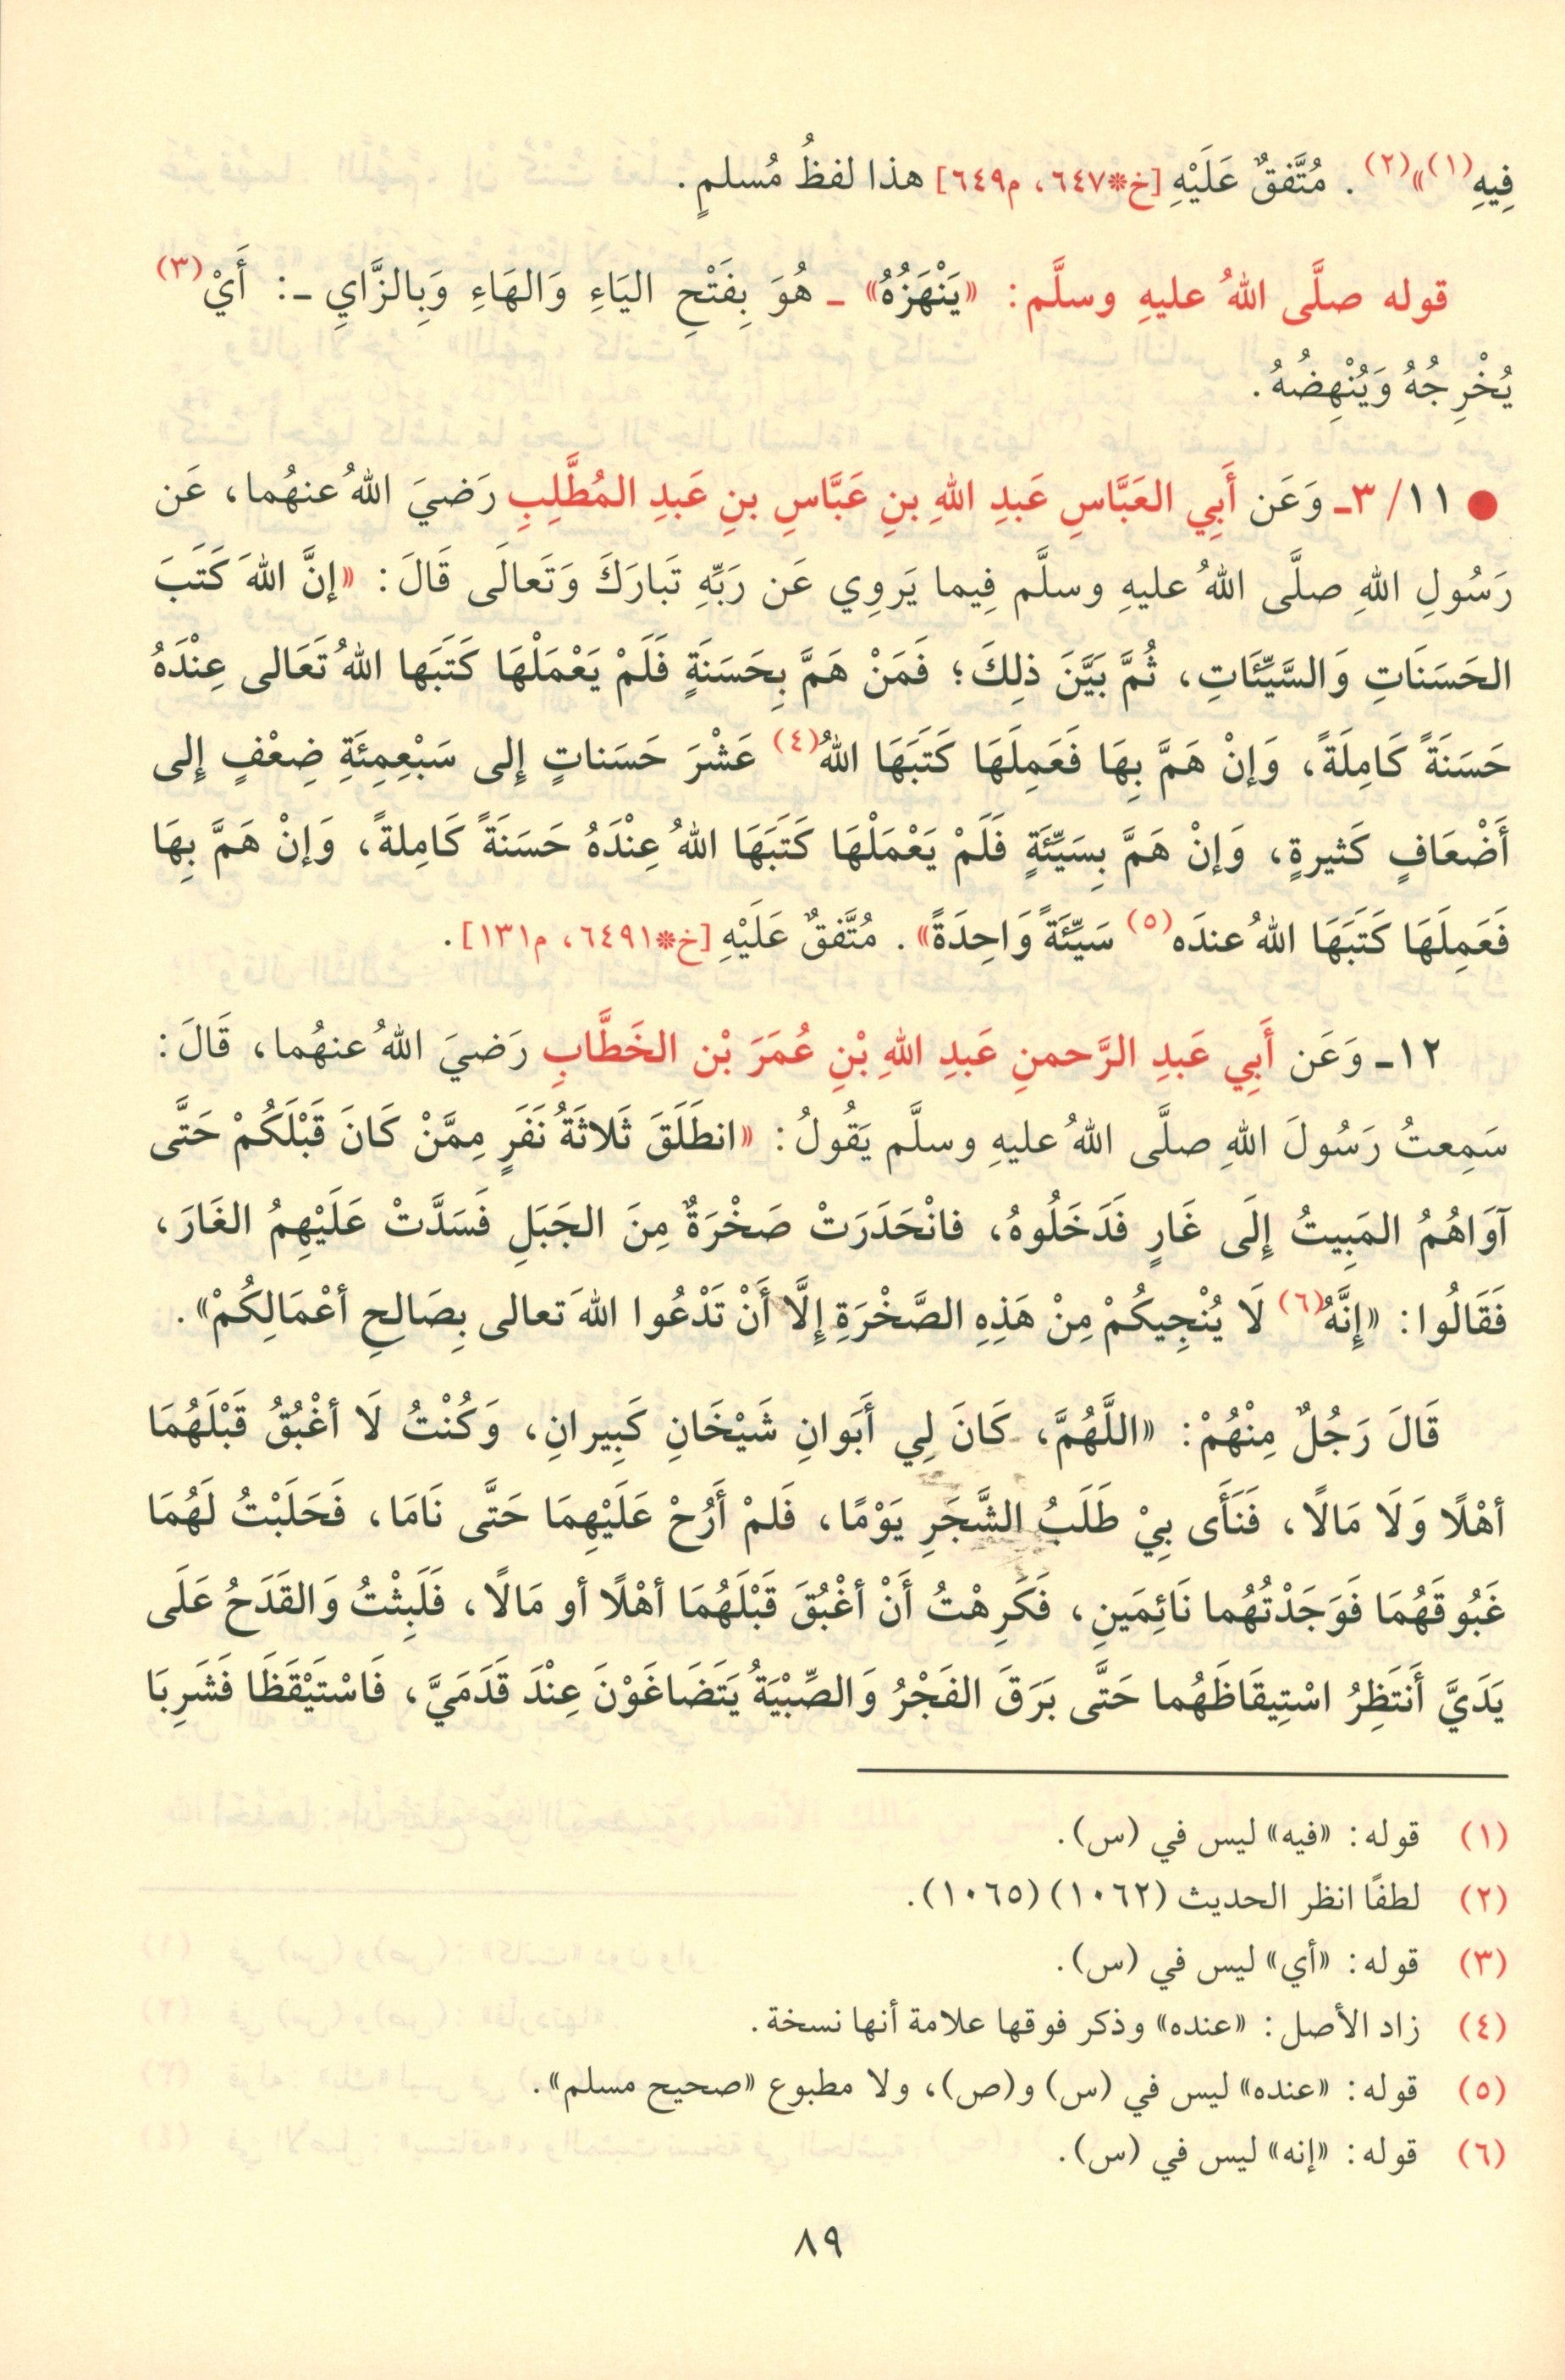 فِيهِ(١)»(٢). مُتَّفقٌ عَلَيْهِ [خ*٦٤٧، م٦٤٩] هذا لفظُ مُسلمٍ.
قوله صلَّى اللهُ عليهِ وسلَّم: «يَنْهَزُهُ» ـ هُوَ بِفَتْحِ اليَاءِ وَالهَاءِ وَبِالزَّايِ ـ: أَيْ(٣)
يُخْرِجُهُ وَيُنْهِضُهُ.
● ١١/ ٣ـ وَعَن أَبِي العَبَّاسِ عَبدِ اللهِ بنِ عَبَّاسِ بنِ عَبدِ المُطَّلِبِ رَضيَ اللهُ عنهُما، عَن
رَسُولِ اللهِ صلَّى اللهُ عليهِ وسلَّم فِيما يَروِي عَن رَبِّهِ تَبارَكَ وَتَعالَى قَالَ: «إنَّ اللهَ كَتَبَ
الحَسَنَاتِ وَالسَّيِّئَاتِ، ثُمَّ بَيَّنَ ذلِكَ؛ فَمَنْ هَمَّ بِحَسَنَةٍ فَلَمْ يَعْمَلْهَا كَتَبَها اللهُ تَعَالى عِنْدَهُ
حَسَنَةً كَامِلَةً، وَإنْ هَمَّ بِهَا فَعَمِلَهَا كَتَبَهَا اللهُ(٤) عَشْرَ حَسَناتٍ إِلى سَبْعِمِئَةِ ضِعْفٍ إِلى
أَضْعَافٍ كَثيرةٍ، وَإنْ هَمَّ بِسَيِّئَةٍ فَلَمْ يَعْمَلْهَا كَتَبَهَا اللهُ عِنْدَهُ حَسَنَةً كَامِلةً، وَإنْ هَمَّ بِهَا
فَعَمِلَهَا كَتَبَهَا اللهُ عندَه(٥) سَيِّئَةً وَاحِدَةً». مُتَّفقٌ عَلَيْهِ [خ*٦٤٩١، م١٣١].
١٢ـ وَعَن أَبِي عَبدِ الرَّحمنِ عَبدِ اللهِ بْنِ عُمَرَ بْن الخَطَّابِ رَضيَ اللهُ عنهُما، قَالَ:
سَمِعتُ رَسُولَ اللهِ صلَّى اللهُ عليهِ وسلَّم يَقُولُ: «انطَلَقَ ثَلاثَةُ نَفَرٍ مِمَّنْ كَانَ قَبْلَكُمْ حَتَّى
آوَاهُمُ المَبِيتُ إِلَى غَارٍ فَدَخَلُوهُ، فانْحَدَرَتْ صَخْرَةٌ مِنَ الجَبَلِ فَسَدَّتْ عَلَيْهِمُ الغَارَ،
فَقَالُوا: «إِنَّهُ(٦) لَا يُنْجِيكُمْ مِنْ هَذِهِ الصَّخْرَةِ إِلَّا أَنْ تَدْعُوا اللهَ تعالى بِصَالحِ أعْمَالِكُمْ».
قَالَ رَجُلٌ مِنْهُمْ: «اللَّهُمَّ، كَانَ لِي أبَوانِ شَيْخَانِ كَبِيرانِ، وَكُنْتُ لَا أغْبُقُ قَبْلَهُمَا
أهْلًا وَلَا مَالًا، فَنَأَى بِيْ طَلَبُ الشَّجَرِ يَوْمًا، فَلمْ أَرُحْ عَلَيْهِمَا حَتَّى نَامَا، فَحَلَبْتُ لَهُمَا
غَبُوقَهُمَا فَوَجَدْتُهُما نَائِمَينِ، فَكَرِهْتُ أَنْ أغْبُقَ قَبْلَهُمَا أهْلًا أو مَالًا، فَلَبِثْتُ وَالقَدَحُ عَلَى
يَدَيَّ أَنتَظِرُ اسْتِيقَاظَهُما حَتَّى بَرَقَ الفَجْرُ وَالصِّبْيَةُ يَتَضَاغَوْنَ عِنْدَ قَدَمَيَّ، فَاسْتَيْقَظَا فَشَرِبَا
(١) قوله: «فيه» ليس في (س).
(٢) لطفًا انظر الحديث (١٠٦٢) (١٠٦٥).
(٣) قوله: «أي» ليس في (س).
(٤) زاد الأصل: «عنده» وذكر فوقها علامة أنها نسخة.
(٥) قوله: «عنده» ليس في (س) و(ص)، ولا مطبوع «صحيح مسلم».
(٦) قوله: «إنه» ليس في (س).
٨٩